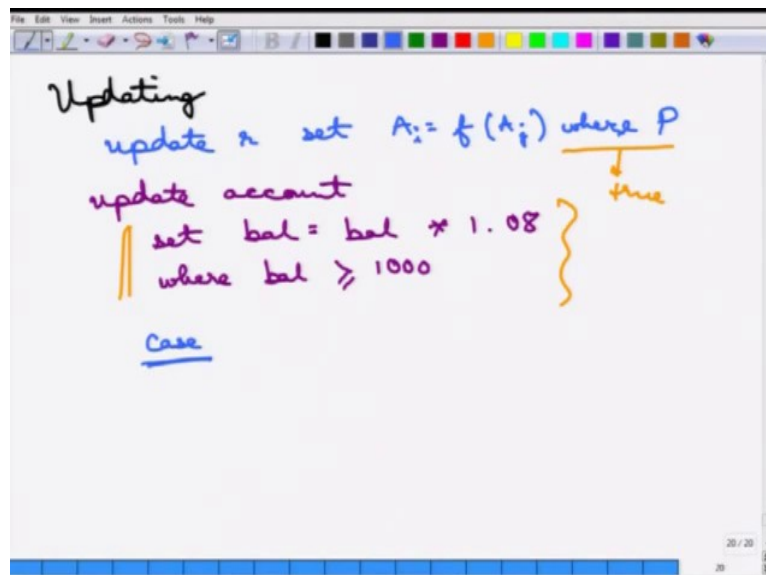 File Edit View Insert Actions Tools Help
B I
Updating
update r set Ai = f (Aj) where P
true
update account
set bal = bal * 1.08
where bal ≥ 1000
Case
20 / 20
20